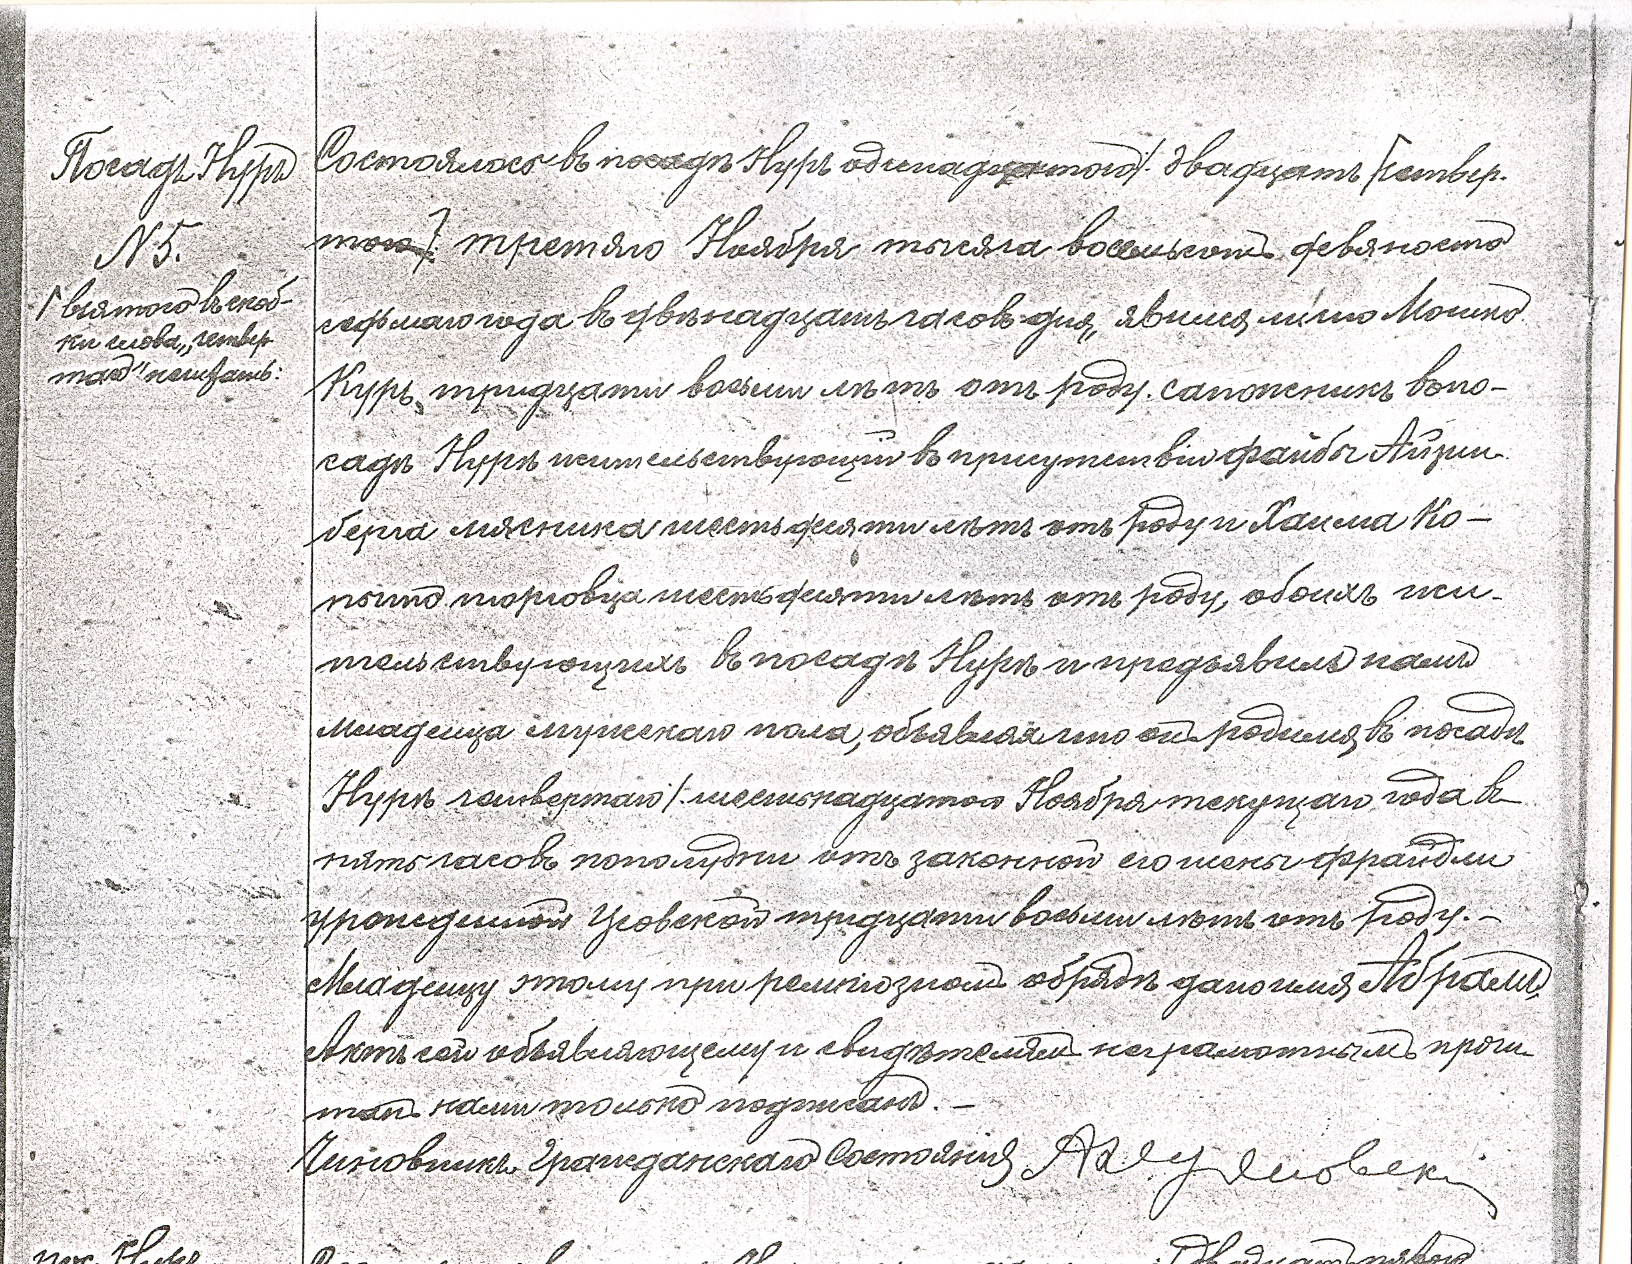 Посадъ Нуръ
N 5.
взятого въ скоб-
ки слова „четвер
таго" не читать:
Состоялось въ посадѣ Нурѣ одинадцатого /: двадцать [четвер-
того] :/ третяго Ноября тысяча восемьсотъ девяносто
седьмаго года въ двѣнадцать часовъ дня, явился лично Мошко
Куръ, тридцати восьми лѣтъ отъ роду. сапожникъ въ по-
садѣ Нурѣ жительствующій въ присутствіи Файбы Айзен-
берга мясника шестьдесяти лѣтъ отъ роду и Хаима Ко-
пыто торговца шестьдесяти лѣтъ отъ роду, обоихъ жи-
тельствующихъ въ посадѣ Нурѣ и предъявилъ намъ
младенца мужескаго пола, объявляя что онъ родился въ посадѣ
Нурѣ четвертаго /: шестьнадцатого Ноября текущаго года въ
пять часовъ пополудни отъ законной его жены Фрайдли
урожденной Цловской тридцати восьми лѣтъ отъ роду. –
Младенцу этому при религіозномъ обрядѣ дано имя Абрамъ,
Актъ сей объявляющему и свидѣтелямъ неграмотнымъ прочи-
танъ нами только подписанъ. –
Чиновникъ Гражданскаго Состоянія
пос. Нуръ